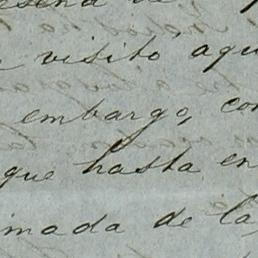 visitó aqu
embargo, con
que hasta en
imada de la